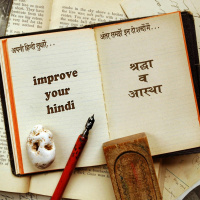 अपनी हिन्दी सुधारें...
improve
your
hindi
अंतर समझें इन दो शब्दों में...
श्रद्धा
व
आस्था